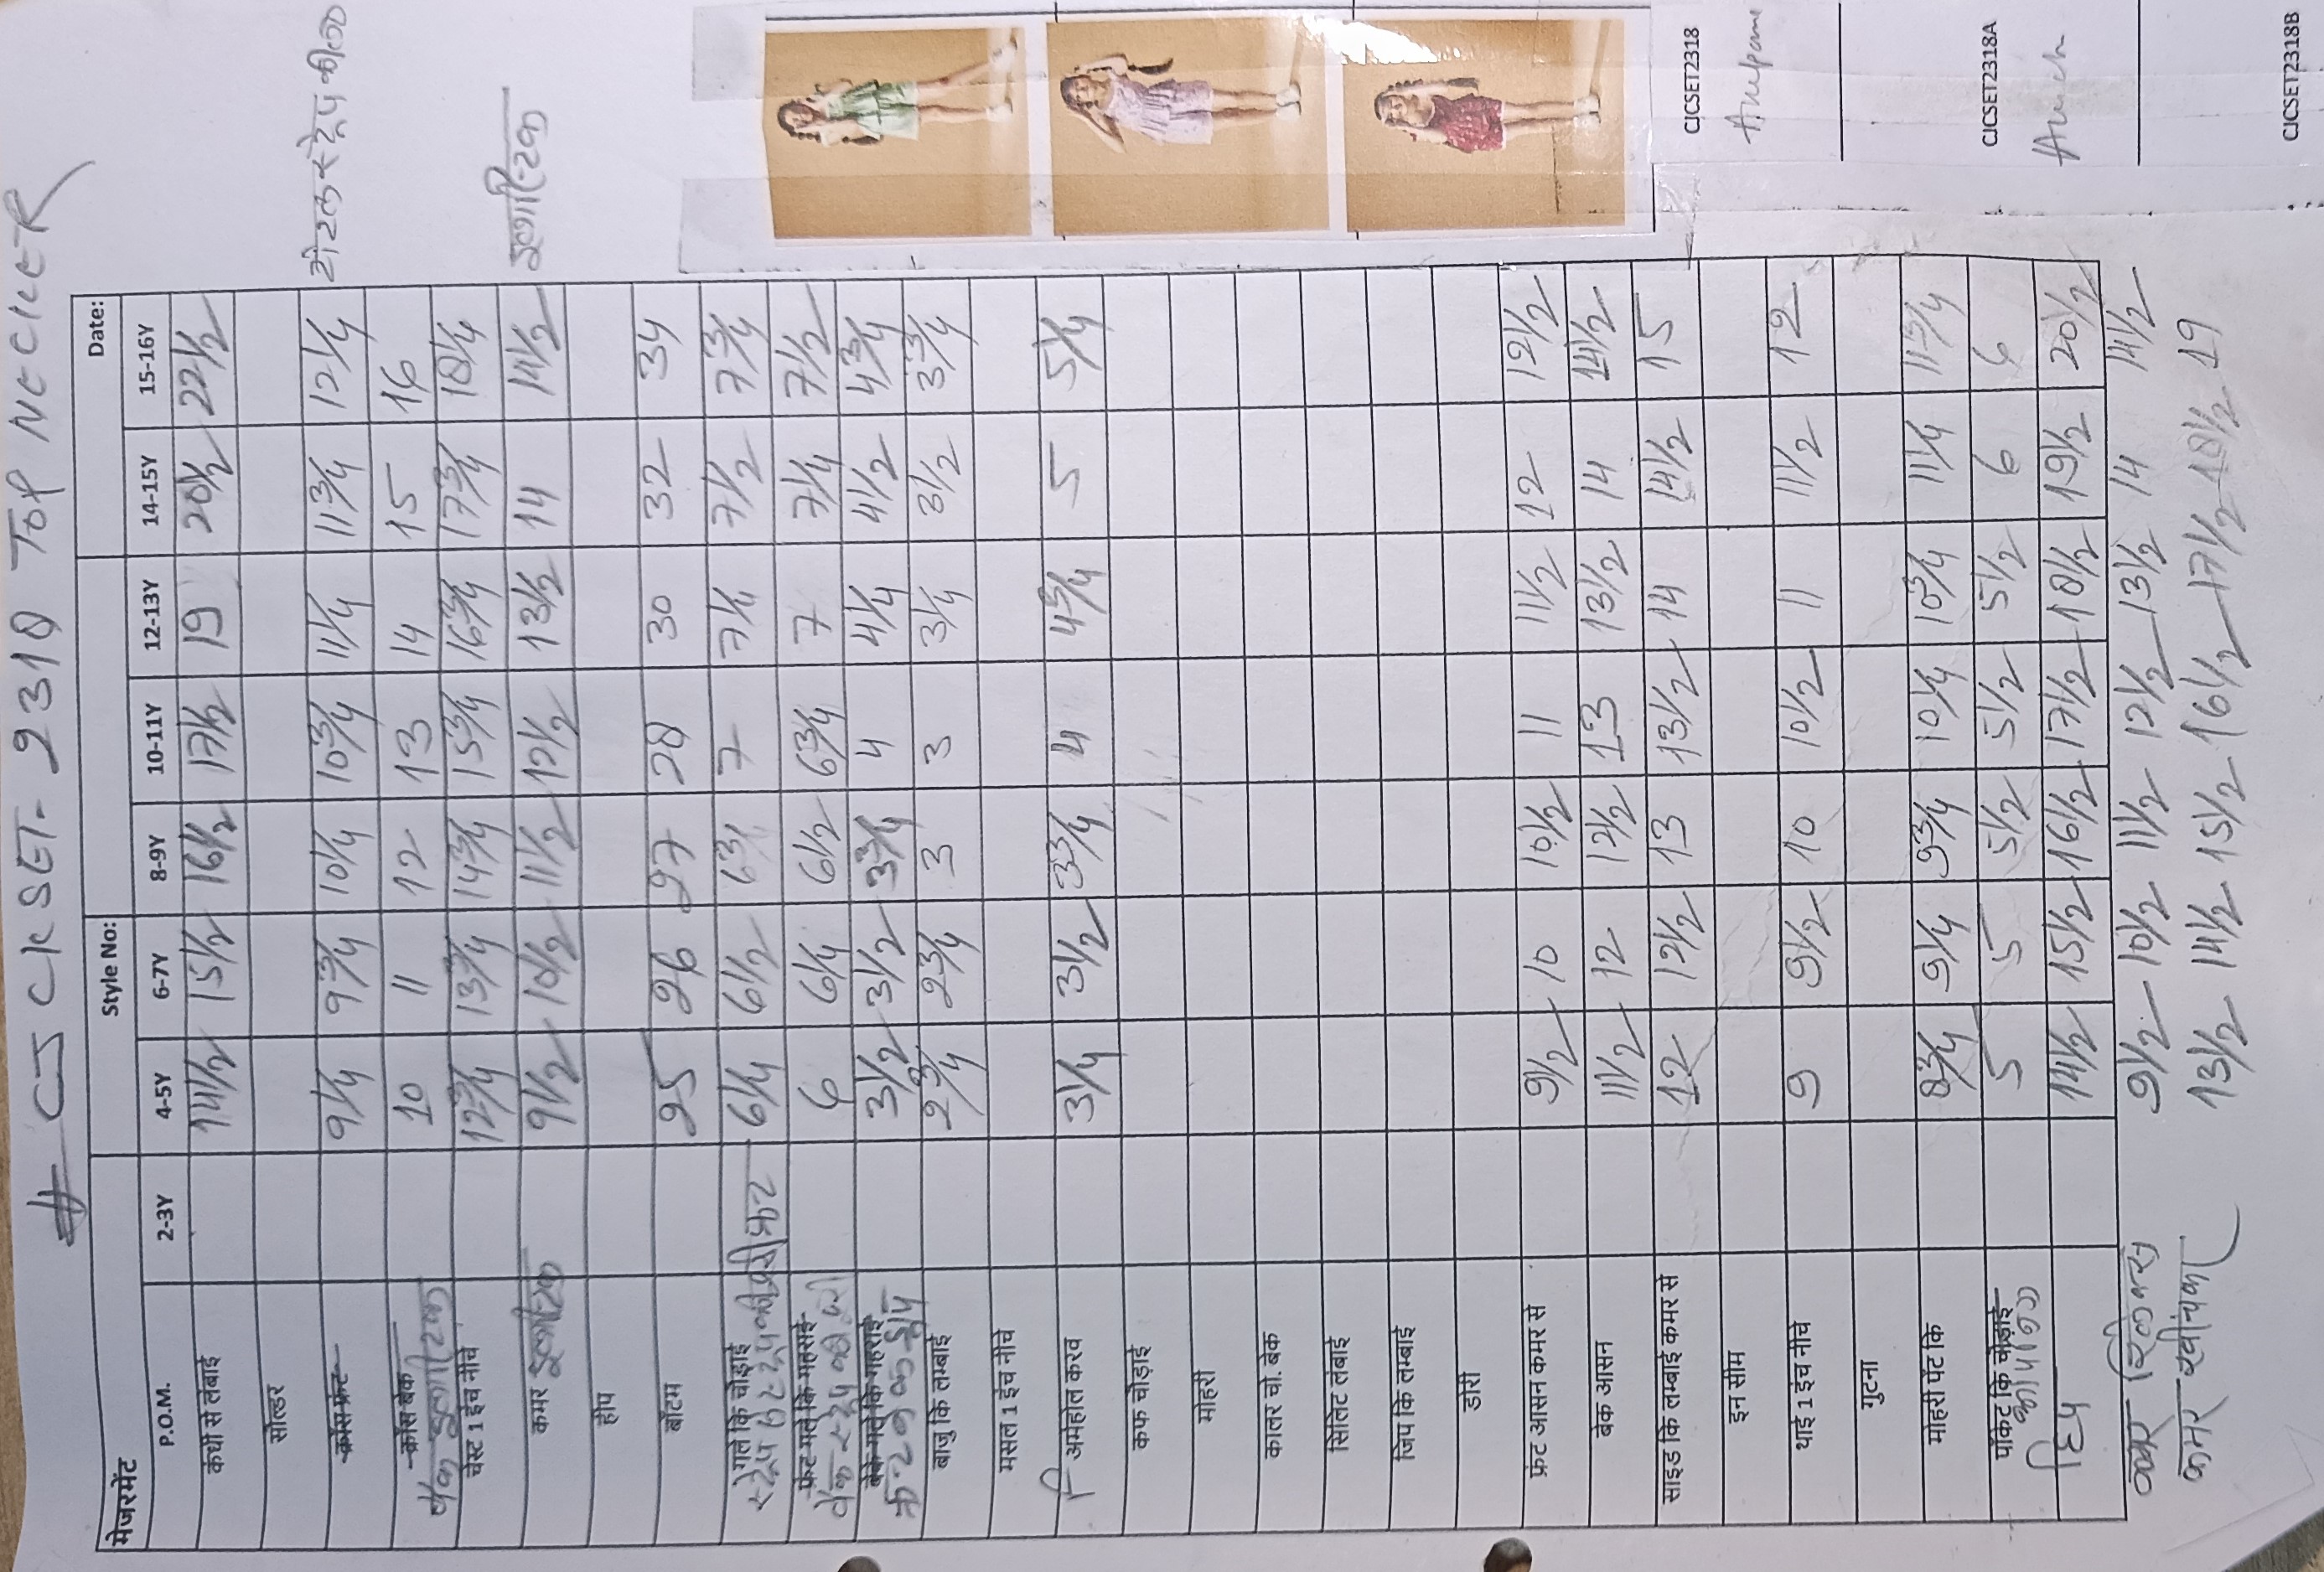 # CJ CKSET- 2318 TOP NECKER
मेजरमेंट Style No: Date:
P.O.M. 2-3Y 4-5Y 6-7Y 8-9Y 10-11Y 12-13Y 14-15Y 15-16Y
कंधी से लंबाई 14 1/2 15 1/2 16 1/2 17 1/2 19 20 1/2 22 1/2
सोल्डर
क्रॉस फ्रंट 9 1/4 9 3/4 10 1/4 10 3/4 11 1/4 11 3/4 12 1/4
क्रॉस बेक 10 11 12 13 14 15 16
बैक इलास्टिक
चेस्ट 1 इंच नीचे 12 3/4 13 3/4 14 3/4 15 3/4 16 3/4 17 3/4 18 1/4
कमर इलास्टिक 9 1/2 10 1/2 11 1/2 12 1/2 13 1/2 14 14 1/2 इलास्टिक
हीप
बॉटम 25 26 27 28 30 32 34
गले कि चोड़ाई 6 1/4 6 1/2 6 3/ 7 7 1/4 7 1/2 7 3/4
फ्रंट गले कि गहराई 6 6 1/4 6 1/2 6 3/4 7 7 1/4 7 1/2
बेक गले कि गहराई 3 1/2 3 1/2 3 3/4 4 4 1/4 4 1/2 4 3/4
बाजु कि लम्बाई 2 3/4 2 3/4 3 3 3 1/4 3 1/2 3 3/4
मसल 1 इंच नीचे
अर्महोल करव 3 1/4 3 1/2 3 3/4 4 4 3/4 5 5 1/4
कफ चोड़ाई
मोहरी
कालर चो. बेक
सिलिट लंबाई
जिप कि लम्बाई
डोरी
फ्रंट आसन कमर से 9 1/2 10 10 1/2 11 11 1/2 12 12 1/2
बेक आसन 11 1/2 12 12 1/2 13 13 1/2 14 14 1/2
साइड कि लम्बाई कमर से 12 12 1/2 13 13 1/2 14 14 1/2 15
इन सीम
थाई 1 इंच नीचे 9 9 1/2 10 10 1/2 11 11 1/2 12
गुटना
मोहरी पेंट कि 8 3/4 9 1/4 9 3/4 10 1/4 10 3/4 11 1/4 11 3/4
पॉकेट कि चोड़ाई 5 5 5 1/2 5 1/2 5 1/2 6 6
हिप 14 1/2 15 1/2 16 1/2 17 1/2 18 1/2 19 1/2 20 1/2
कमर रिलेक्स 9 1/2 10 1/2 11 1/2 12 1/2 13 1/2 14 14 1/2
कमर खींचकर 13 1/2 14 1/2 15 1/2 16 1/2 17 1/2 18 1/2 19
CJCSET2318
Anupam
CJCSET2318A
CJCSET2318B